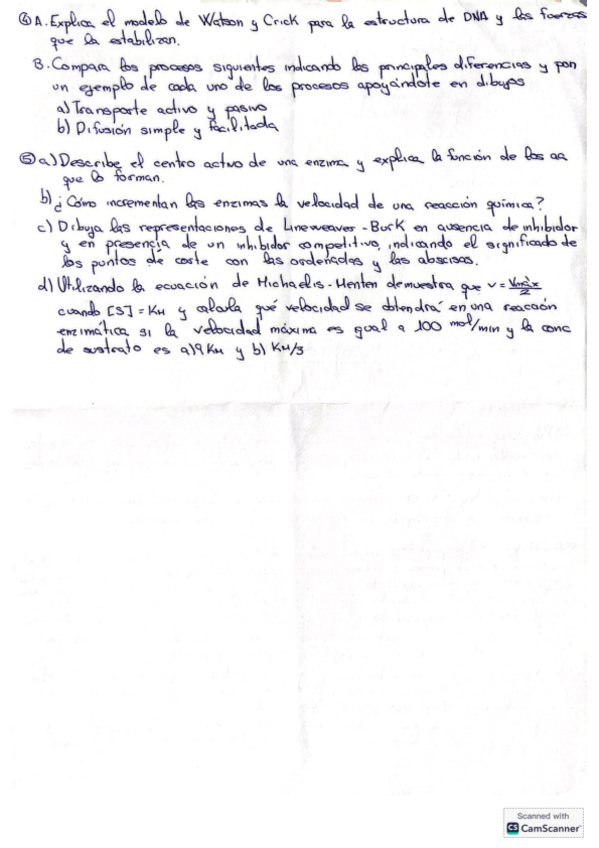 ④ A. Explica el modelo de Watson y Crick para la estructura de DNA y las fuerzas
que la estabilizan.
B. Compara los procesos siguientes indicando las principales diferencias y pon
un ejemplo de cada uno de los procesos apoyándote en dibujos
a) Transporte activo y pasivo
b) Difusión simple y facilitada
⑤ a) Describe el centro activo de una enzima y explica la función de los aa
que lo forman.
b) ¿Cómo incrementan las enzimas la velocidad de una reacción química?
c) Dibuja las representaciones de Lineweaver-Burk en ausencia de inhibidor
y en presencia de un inhibidor competitivo, indicando el significado de
los puntos de corte con las ordenadas y las abscisas.
d) Utilizando la ecuación de Michaelis-Menten demuestra que v = Vmáx/2
cuando [S] = KM y calcula qué velocidad se obtendrá en una reacción
enzimática si la velocidad máxima es igual a 100 mol/min y la conc
de sustrato es a) 9 KM y b) KM/3
Scanned with
CS CamScanner